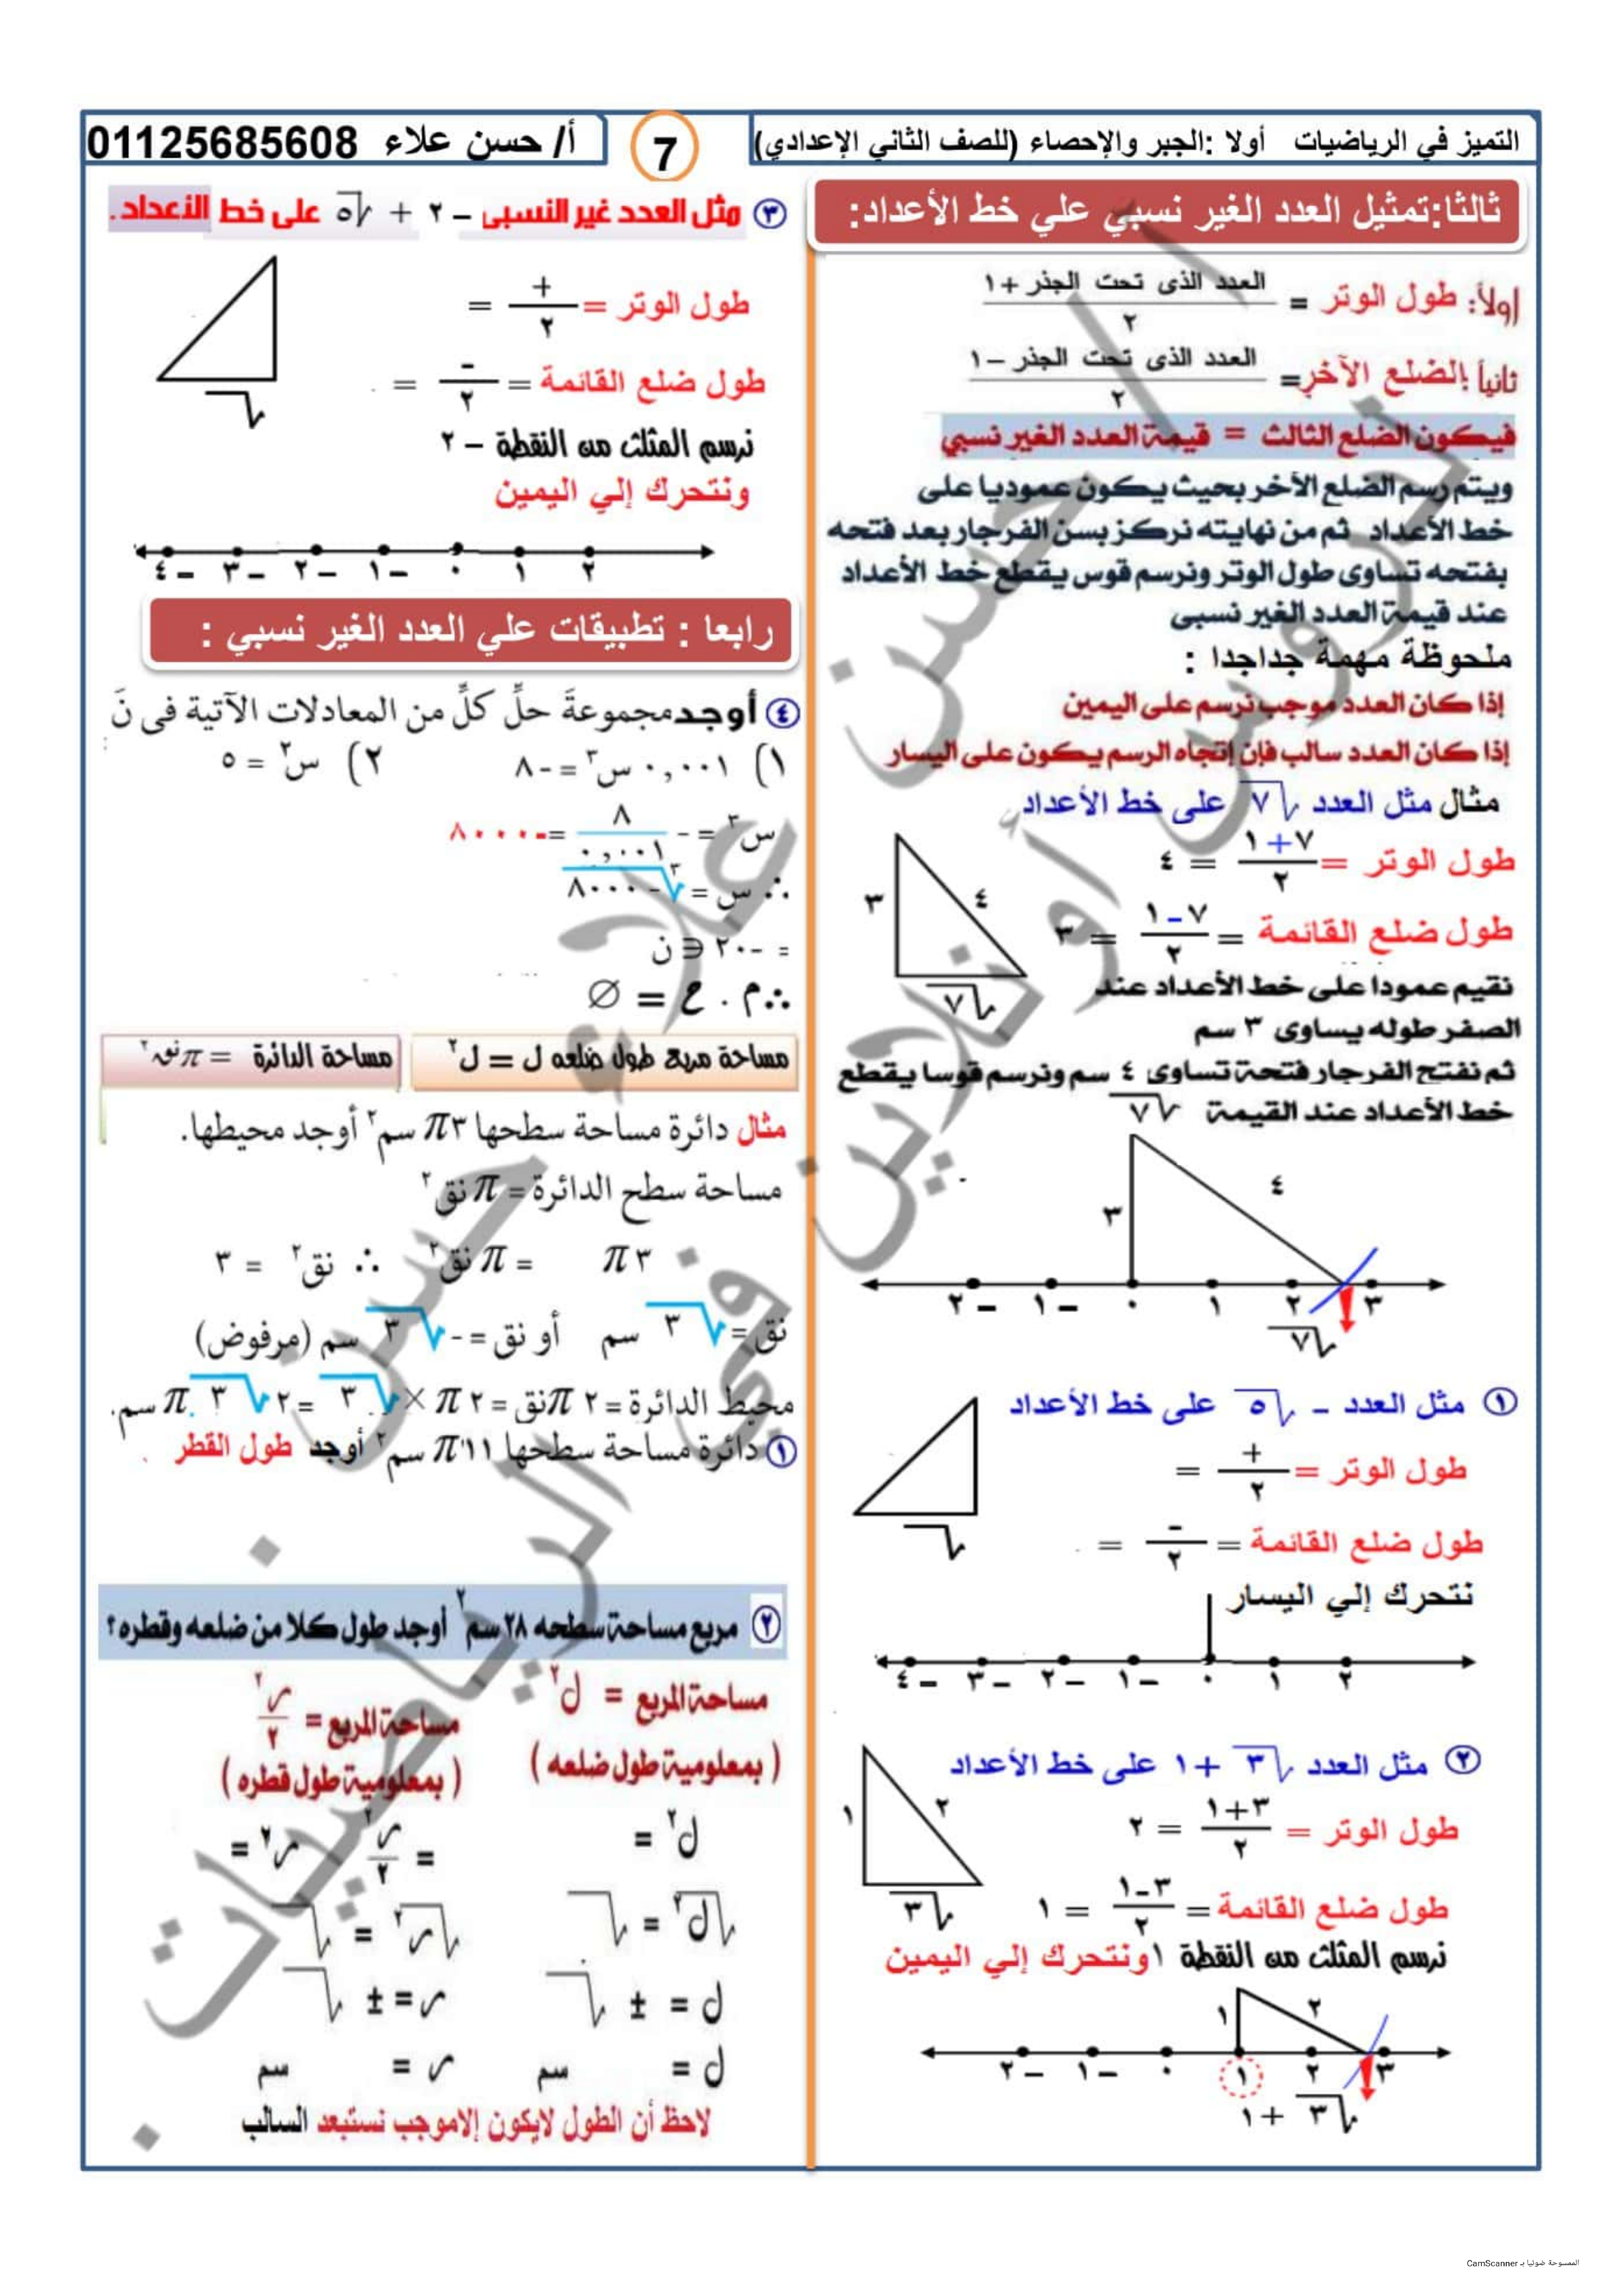 التميز في الرياضيات أولا :الجبر والإحصاء (للصف الثاني الإعدادي)
7
أ/ حسن علاء 01125685608
ثالثا:تمثيل العدد الغير نسبي علي خط الأعداد:
أولاً: طول الوتر = العدد الذى تحت الجذر +١ / ٢
ثانياً :الضلع الآخر= العدد الذى تحت الجذر –١ / ٢
فيكون الضلع الثالث = قيمة العدد الغير نسبي
ويتم رسم الضلع الأخر بحيث يكون عموديا على
خط الأعداد ثم من نهايته نركز بسن الفرجار بعد فتحه
بفتحه تساوى طول الوتر ونرسم قوس يقطع خط الأعداد
عند قيمة العدد الغير نسبى
ملحوظة مهمة جداجدا :
إذا كان العدد موجب نرسم على اليمين
إذا كان العدد سالب فإن إتجاه الرسم يكون على اليسار
مثال مثل العدد √٧ على خط الأعداد
طول الوتر = ٧+١ / ٢ = ٤
طول ضلع القائمة = ٧-١ / ٢ = ٣
٣ ٤ √٧
نقيم عمودا على خط الأعداد عند
الصفر طوله يساوى ٣ سم
ثم نفتح الفرجار فتحة تساوى ٤ سم ونرسم قوسا يقطع
خط الأعداد عند القيمة √٧
٣ ٤
–٢ –١ ٠ ١ ٢ ٣
√٧
١ مثل العدد – √٥ على خط الأعداد
طول الوتر = + / ٢ =
طول ضلع القائمة = - / ٢ =
√
نتحرك إلي اليسار
–٤ –٣ –٢ –١ ٠ ١ ٢
٢ مثل العدد √٣ +١ على خط الأعداد
طول الوتر = ٣+١ / ٢ = ٢
طول ضلع القائمة = ٣-١ / ٢ = ١
١ ٢ √٣
نرسم المثلث من النقطة ١ ونتحرك إلي اليمين
١ ٢
–٢ –١ ٠ ١ ٢ ٣
√٣ +١
٣ مثل العدد غير النسبى –٢ + √٥ على خط الأعداد.
طول الوتر = + / ٢ =
طول ضلع القائمة = - / ٢ =
√
نرسم المثلث من النقطة –٢
ونتحرك إلي اليمين
–٤ –٣ –٢ –١ ٠ ١ ٢
رابعا : تطبيقات علي العدد الغير نسبي :
٤ أوجد مجموعةَ حلِّ كلٍّ من المعادلات الآتية فى نَ
١) ٠,٠٠١ س٣ = -٨ ٢) س٢ = ٥
س٣ = - ٨ / ٠,٠٠١ =-٨٠٠٠
∴ س = ٣√-٨٠٠٠
= -٢٠ ∋ ن
∴م . ح = ∅
مساحة مربع طول ضلعه ل = ل٢
مساحة الدائرة = π نق٢
مثال دائرة مساحة سطحها ٣π سم٢ أوجد محيطها.
مساحة سطح الدائرة = π نق٢
٣ π = π نق٢ ∴ نق٢ = ٣
نق = √٣ سم أو نق = -√٣ سم (مرفوض)
محيط الدائرة = ٢ π نق = ٢ π × √٣ = ٢ √٣ π سم.
١ دائرة مساحة سطحها ١١ π سم٢ أوجد طول القطر .
٢ مربع مساحة سطحه ٢٨ سم٢ أوجد طول كلا من ضلعه وقطره ؟
مساحة المربع = ل٢ مساحة المربع = س٢ / ٢
( بمعلومية طول ضلعه ) ( بمعلومية طول قطره )
ل٢ = س٢ / ٢ = س٢ =
√ل٢ = √ √س٢ = √
ل = ± √ س = ± √
ل = سم س = سم
لاحظ أن الطول لايكون إلاموجب نستبعد السالب
أ / حسن علاء
دروس أونلاين في الرياضيات
حسن
الممسوحة ضوئيا بـ CamScanner